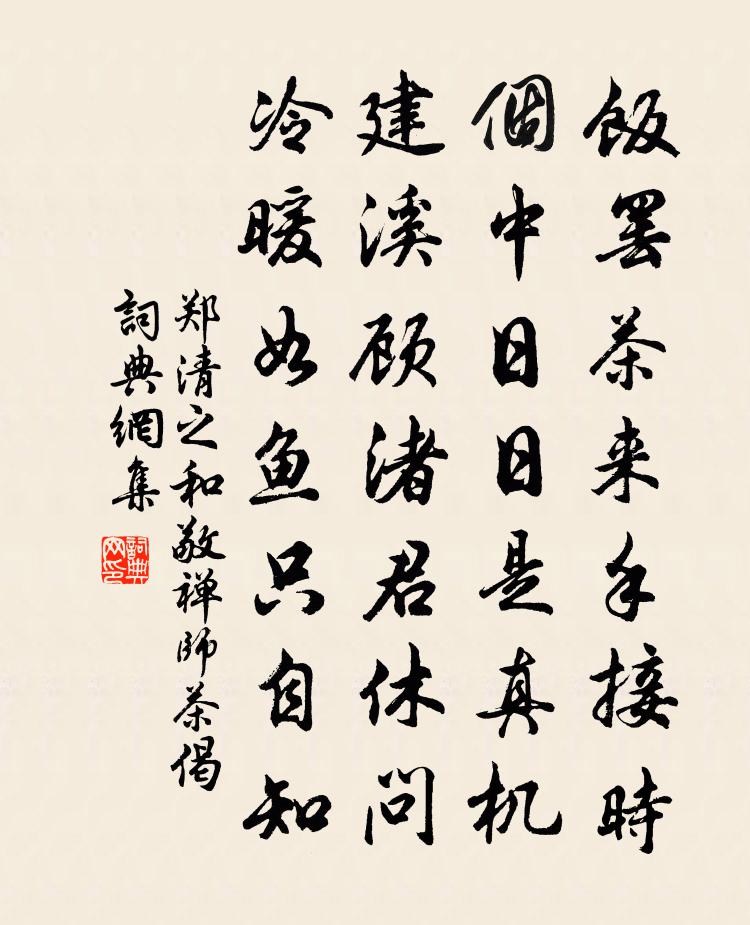 飯罢茶来手接時
個中日日是真机
建溪顾渚君休问
冷暖如鱼只自知
郑清之和敬禅師茶偈
詞典網集
詞典网印